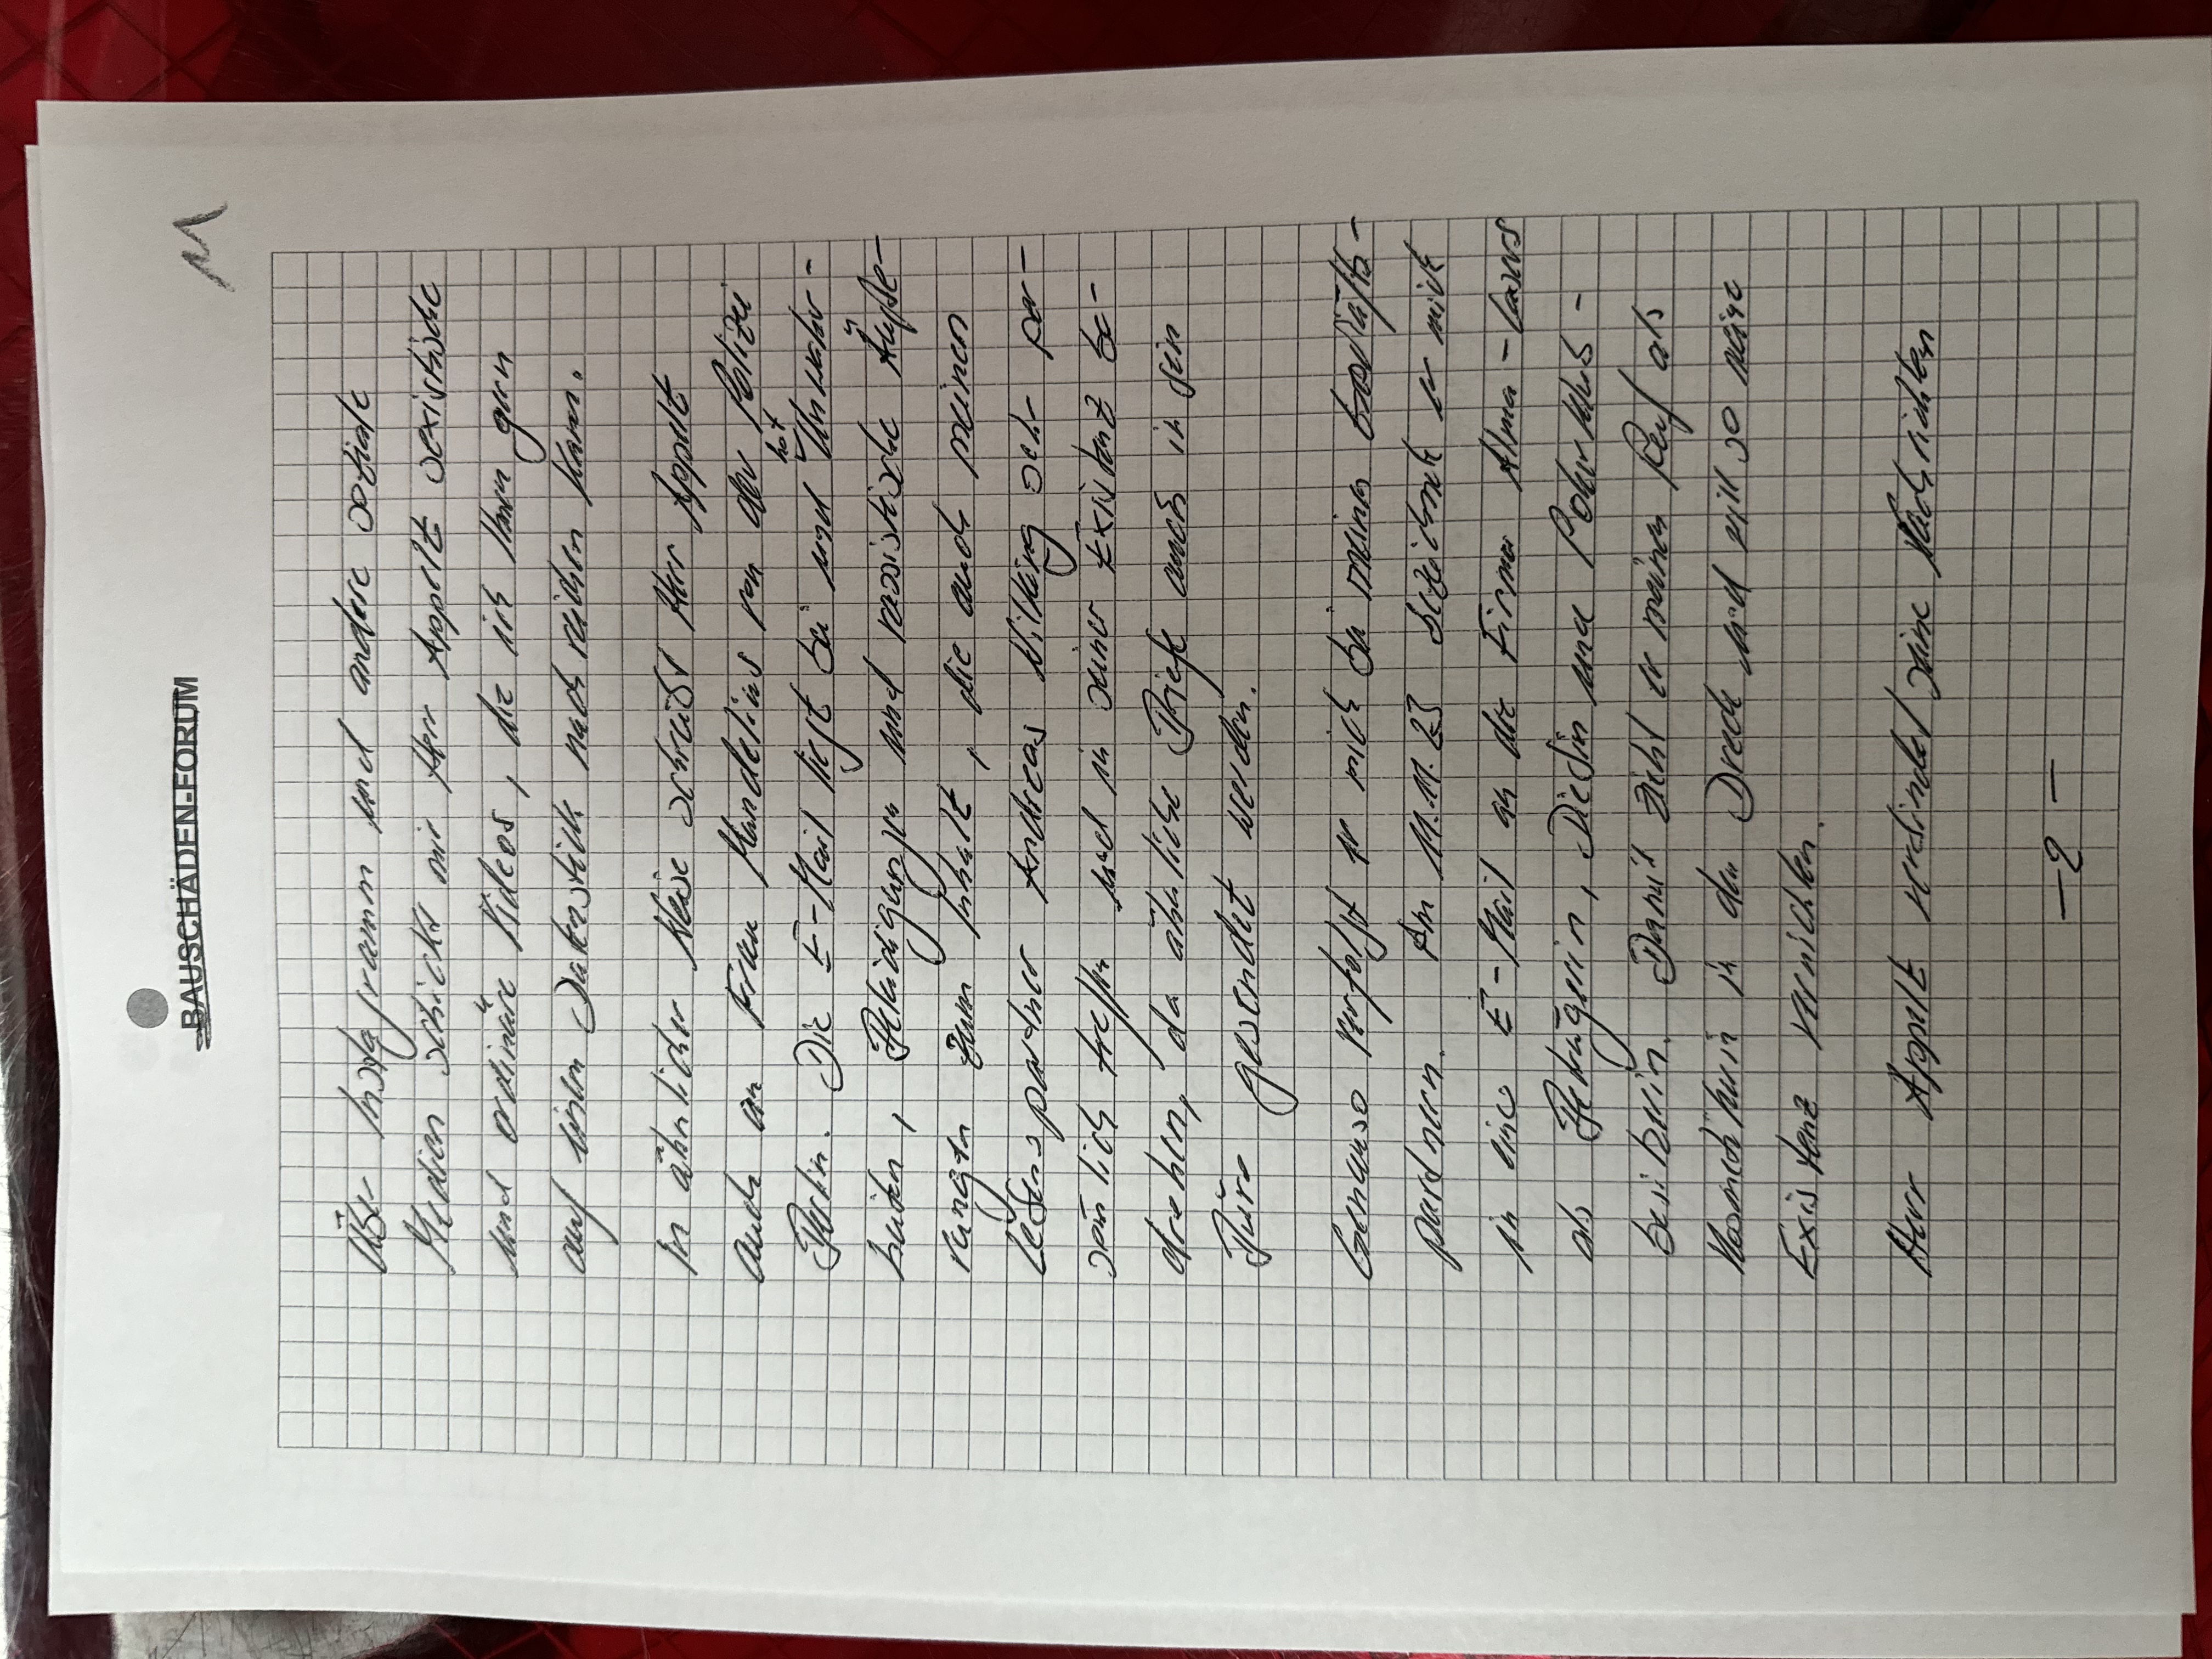 BAUSCHÄDEN-FORUM
Über Instagramm und andere soziale
Medien schickt mir Herr Appelt sexistische
und ordinäre Videos, die ich Ihnen gern
auf einem Datenstick nachreichen kann.
In ähnlicher Weise schreibt Herr Appelt
auch an Frau Mandelius von der Polizei
Berlin. Die E-Mail liegt bei und Unwahr-
hat
heiten, Beleidigungen und rassistische Äuße-
rungen zum Inhalt, die auch meinen
Lebenspartner Andreas Wilking sehr per-
sönlich treffen und in seiner Existenz be-
drohen, da ähnliche Briefe auch in sein
Büro gesendet werden.
Genauso verfolgt er mich bei meinen Geschäfts-
partnern. Am 11.11.23 bezeichnet er mich
in eine E-Mail an die Firma Alma-
als Betrügerin, Diebin und
besitzerin. Damit zieht er meinen Ruf als
in den Dreck und will so meine
Existenz vernichten.
Herr Appelt verbindet seine Nachrichten
-2-